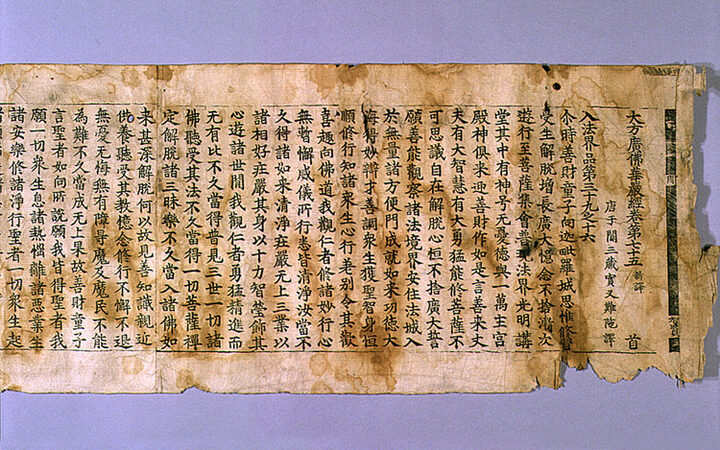 大方廣佛華嚴經卷第七十五 新譯 首
唐于闐三藏實叉難陁譯
入法界品第三十九之十六
尒時善財童子向迦毗羅城思惟修習
受生解脫增長廣大憶念不捨漸次
遊行至菩薩集會普現法界光明講
堂其中有神号无憂德與一萬主宮
殿神俱来迎善財作如是言善来丈
夫有大智慧有大勇猛能修菩薩不
可思議自在解脫心恒不捨廣大誓
願善能觀察諸法境界安住法城入
於無量諸方便門成就如来功德大
海得妙辯才善調衆生獲聖智身恒
順修行知諸衆生心行差别令其歡
喜趣向佛道我觀仁者修諸妙行心
無暫懈威儀所行悉皆清淨汝當不
久得諸如来清淨莊嚴无上三業以
諸相好莊嚴其身以十力智瑩飾其
心遊諸世間我觀仁者勇猛精進而
无有比不久當得普見三世一切諸
佛聽受其法不久當得一切菩薩禪
定解脫諸三昧樂不久當入諸佛如
来甚深解脫何以故見善知識親近
供養聽受其教憶念修行不懈不退
無憂无悔無有障㝵魔及魔民不能
為難不久當成无上果故善財童子
言聖者如向所說願我皆得聖者我
願一切衆生息諸熱惱離諸惡業生
諸安樂修諸淨行聖者一切衆生起